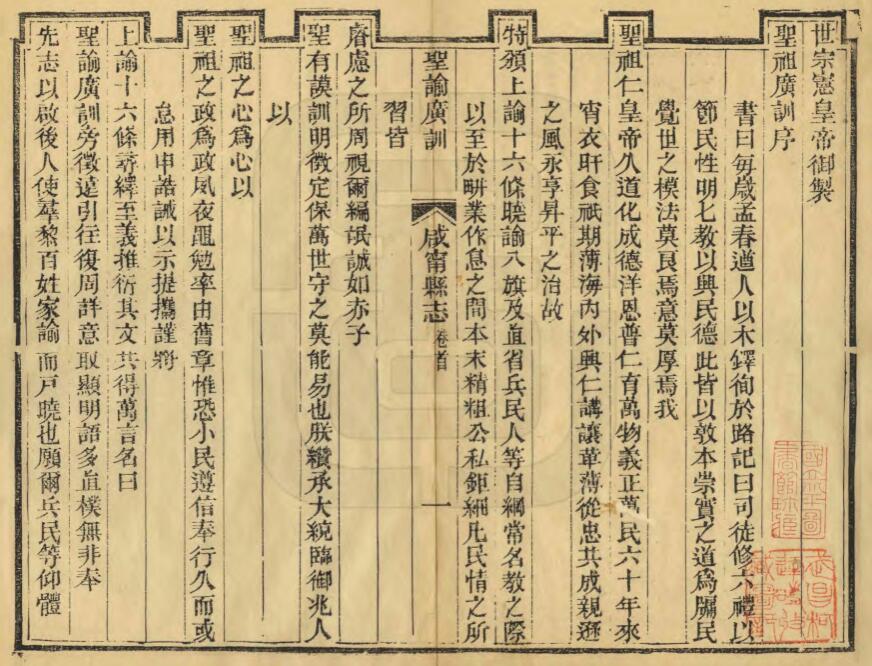 世宗憲皇帝御製
聖祖廣訓序
書曰每歲孟春遒人以木鐸徇於路記曰司徒修六禮以
節民性明七教以興民德此皆以敦本崇實之道爲牖民
覺世之模法莫良焉意莫厚焉我
聖祖仁皇帝久道化成德洋恩普仁育萬物義正萬民六十年來
宵衣旰食祇期薄海內外興仁講讓革薄從忠共成親遜
之風永享昇平之治故
特頒上諭十六條曉諭八旗及直省兵民人等自綱常名教之際
以至於畊業作息之間本末精粗公私鉅細凡民情之所
聖諭廣訓
咸甯縣志 卷首 一
習皆
睿慮之所周視爾編氓誠如赤子
聖有謨訓明徵定保萬世守之莫能易也朕纘承大統臨御兆人
以
聖祖之心爲心以
聖祖之政爲政夙夜黽勉率由舊章惟恐小民遵信奉行久而或
怠用申誥誡以示提撕謹將
上諭十六條尋繹至義推衍其文共得萬言名曰
聖諭廣訓旁徵遠引往復周詳意取顯明語多直樸無非奉
先志以啟後人使羣黎百姓家諭而戶曉也願爾兵民等仰體